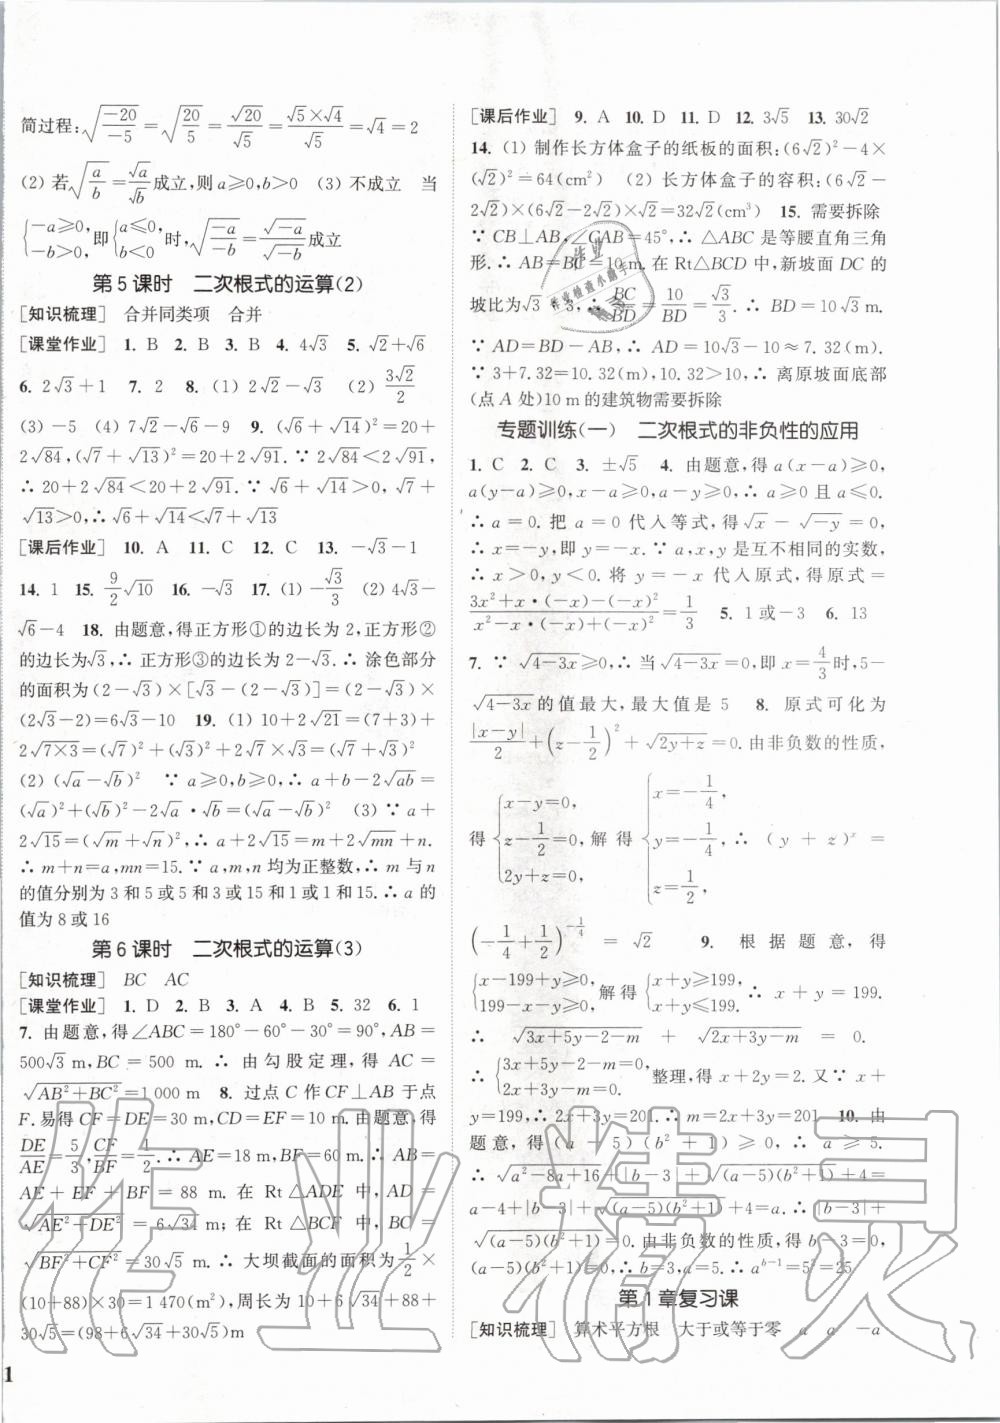 简过程:√(-20/-5)=√(20/5)=√20/√5=(√5×√4)/√5=√4=2
(2) 若√(a/b)=√a/√b成立,则a≥0,b>0 (3) 不成立 当
{-a≥0, -b>0, 即{a≤0, b<0 时,√(-a/-b)=√-a/√-b成立
第5课时 二次根式的运算(2)
[知识梳理] 合并同类项 合并
[课堂作业] 1. B 2. B 3. B 4. 4√3 5. √2+√6
6. 2√3+1 7. 2 8. (1) 2√2-√3 (2) 3√2/2
(3) -5 (4) 7√2-√6-9 9. (√6+√14)²=20+
2√84,(√7+√13)²=20+2√91. ∵ 2√84<2√91,
∴ 20+2√84<20+2√91. ∵ √6+√14>0, √7+
√13>0,∴ √6+√14<√7+√13
[课后作业] 10. A 11. C 12. C 13. -√3-1
14. 1 15. 9/2√10 16. -√3 17. (1) -√3/3 (2) 4√3-
√6-4 18. 由题意,得正方形①的边长为2,正方形②
的边长为√3,∴ 正方形③的边长为√3. ∴ 涂色部分
的面积为(2+√3)×[√3-(2-√3)]=(2+√3)×
(2√3-2)=6√3-10... 19. (1) 10+2√21=(7+3)+
2√(7×3)=(√7)²+(√3)²+2√7×√3=(√7+√3)²
(2) (√a-√b)² ∵ a≥0,b≥0,∴ a+b-2√ab=
(√a)²+(√b)²-2√a·√b=(√a-√b)² (3) ∵ a+
2√15=(√m+√n)²,∴ a+2√15=m+2√mn+n.
∴ m+n=a,mn=15. ∵ a,m,n均为正整数,∴ m与n
的值分别为3和5或5和3或15和1或1和15. ∴ a的
值为8或16
第6课时 二次根式的运算(3)
[知识梳理] BC AC
[课堂作业] 1. D 2. B 3. A 4. B 5. 32 6. 1
7. 由题意,得∠ABC=180°-60°-30°=90°,AB=
500√3 m,BC=500 m. ∴ 由勾股定理,得 AC=
√(AB²+BC²)=1 000 m 8. 过点C作CF⊥AB于点
F. 易得CF=DE=30 m,CD=EF=10 m. 由题意,得
DE/AE=5/3,CF/BF=1/2. ∴ AE=18 m,BF=60 m. ∴ AB=
AE+EF+BF=88 m. 在 Rt△ADE 中,AD=
√(AE²+DE²)=6√34 m;在 Rt△BCF 中,BC=
√(BF²+CF²)=30√5 m. ∴ 大坝截面的面积为1/2×
(10+88)×30=1 470(m²),周长为10+6√34+88+
30√5=(98+6√34+30√5)m
1
[课后作业] 9. A 10. D 11. D 12. 3√5 13. 30√2
14. (1) 制作长方体盒子的纸板的面积:(6√2)²-4×
(√2)²=64(cm²) (2) 长方体盒子的容积:(6√2-
2√2)×(6√2-2√2)×√2=32√2(cm³) 15. 需要拆除
∵ CB⊥AB,∠CAB=45°,∴ △ABC是等腰直角三角
形. ∴ AB=BC=10 m. 在Rt△BCD中,新坡面DC的
坡比为√3∶3,∴ BC/BD=10/BD=√3/3. ∴ BD=10√3 m.
∵ AD=BD-AB,∴ AD=10√3-10≈7.32(m).
∵ 3+7.32=10.32(m),10.32>10,∴ 离原坡面底部
(点A处)10 m的建筑物需要拆除
专题训练(一) 二次根式的非负性的应用
1. C 2. C 3. ±√5 4. 由题意,得a(x-a)≥0,
a(y-a)≥0,x-a≥0,a-y≥0,∴ a≥0且a≤0.
∴ a=0. 把a=0代入等式,得√x-√-y=0,
∴ x=-y,即y=-x. ∵ a,x,y是互不相同的实数,
∴ x>0,y<0. 将y=-x代入原式,得原式=
(3x²+x·(-x)-(-x)²)/(x²-x·(-x)+(-x)²)=1/3 5. 1或-3 6. 13
7. ∵ √(4-3x)≥0,∴ 当√(4-3x)=0,即x=4/3时,5-
√(4-3x)的值最大,最大值是5 8. 原式可化为
|x-y|/2+(z-1/2)²+√(2y+z)=0. 由非负数的性质,
得{x-y=0, z-1/2=0, 2y+z=0, 解得{x=-1/4, y=-1/4, z=1/2, ∴ (y+z)ˣ=
(-1/4+1/2)^(-1/4)=√2 9. 根据题意,得
{x-199+y≥0, 199-x-y≥0, 解得{x+y≥199, x+y≤199. ∴ x+y=199.
∴ √(3x+5y-2-m)+√(2x+3y-m)=0.
∴ {3x+5y-2-m=0, 2x+3y-m=0, 整理,得x+2y=2. 又∵ x+
y=199,∴ 2x+3y=201. ∴ m=2x+3y=201 10. 由
题意,得(a-5)(b²+1)≥0,∴ a≥5.
∴ √(a²-8a+16)+|b-3|+√((a-5)(b²+1))+4=
a-4+|b-3|+√((a-5)(b²+1))+4=a. ∴ |b-3|+
√((a-5)(b²+1))=0. 由非负数的性质,得b-3=0,
(a-5)(b²+1)=0. ∴ b=3,a=5. ∴ a^(b-1)=5²=25
第1章复习课
[知识梳理] 算术平方根 大于或等于零 a a -a
作业精灵